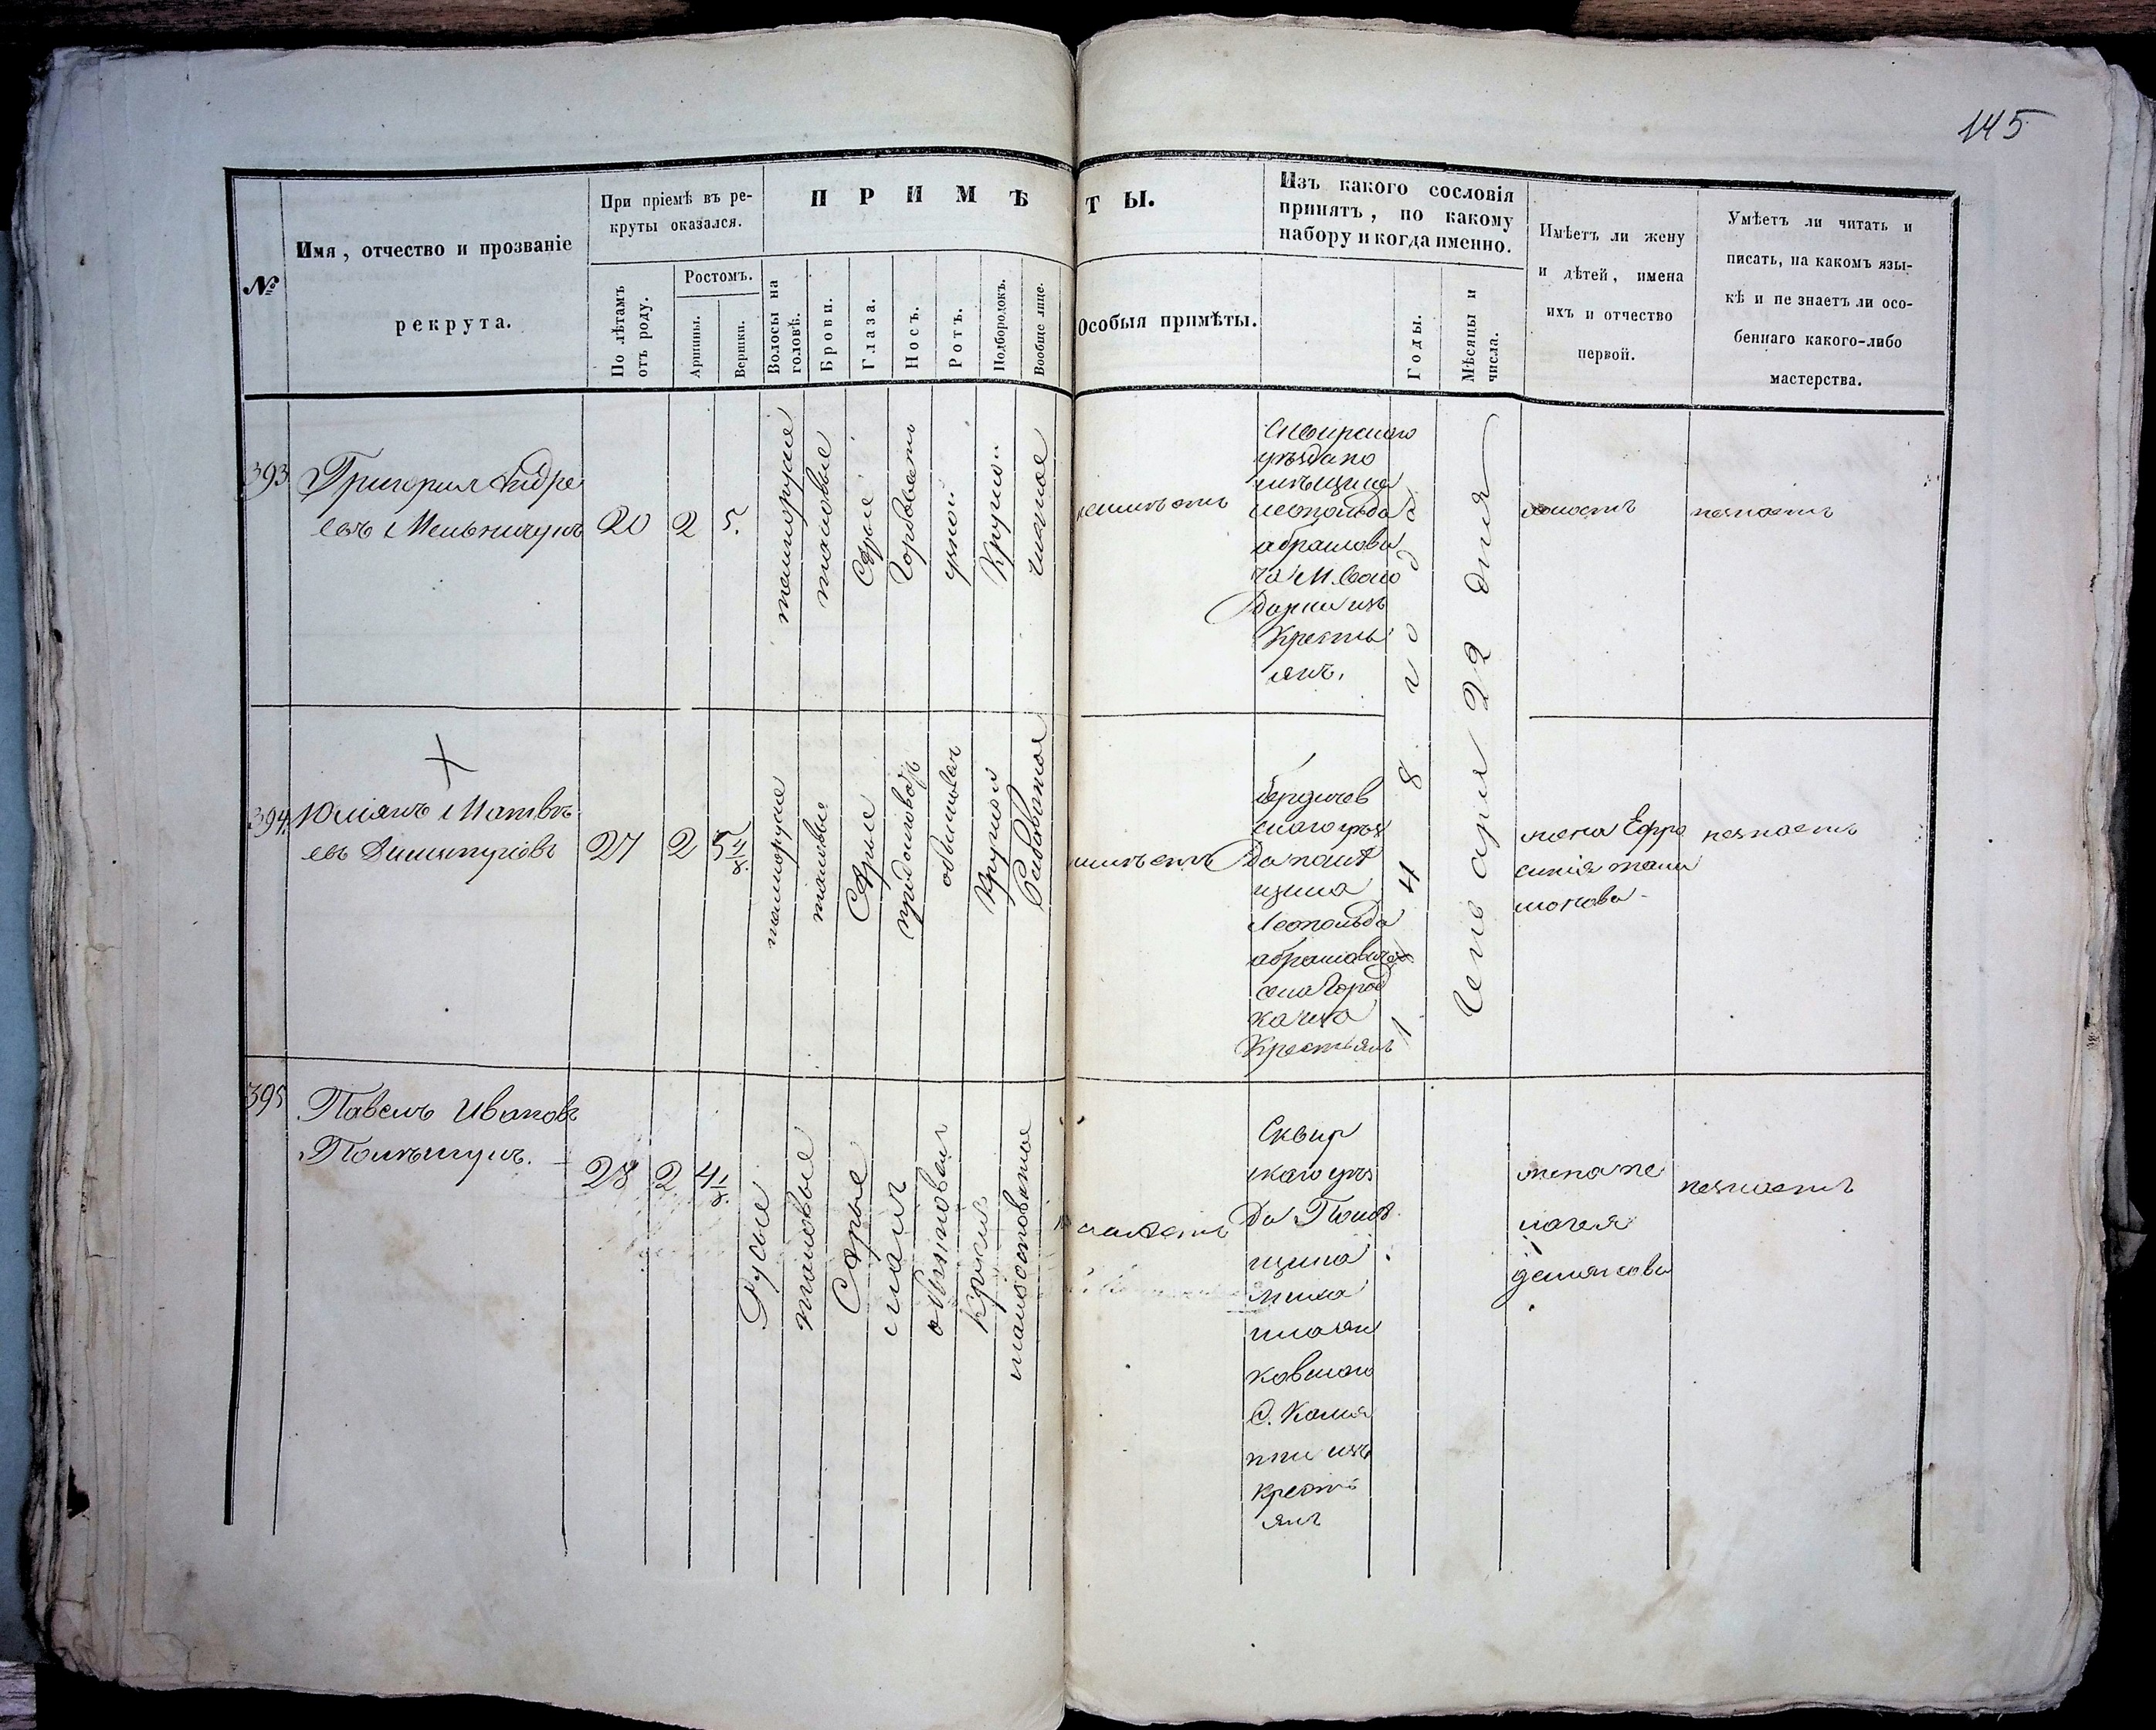 145
№
Имя, отчество и прозваніе
рекрута.
При пріемѣ въ ре-
круты оказался.
По лѣтамъ
отъ роду.
Ростомъ.
Аршины.
Вершки.
ПРИМѢТЫ.
Волосы на
головѣ.
Брови.
Глаза.
Носъ.
Ротъ.
Подбородокъ.
Вообще лице.
Особыя примѣты.
Изъ какого сословія
принятъ, по какому
набору и когда именно.
Годы.
Мѣсяцы и
числа.
Имѣетъ ли жену
и дѣтей, имена
ихъ и отчество
первой.
Умѣетъ ли читать и
писать, на какомъ язы-
кѣ и не знаетъ ли осо-
беннаго какого-либо
мастерства.
393
Григорій Андре
евъ Мельничукъ
20
2
5.
темнорусые
таковые
Сѣрые
Горбоватъ
Круглой
чистое
неимѣетъ
Сквирскаго
уѣзда по
мѣщика
Леопольда
абрамови
ча М.
изъ
Крестья
янъ.
1848 года
Генваря 22 дня
холостъ
незнаетъ
394
Юліянъ Матвѣ
евъ
27
2
5 4/8
темнорусые
таковые
Сѣрые
обыкновенъ
Круглой
Рябоватое
неимѣетъ
Бердичев
скаго уѣз
да помѣ
щика
Леопольда
абрамовича
села Город
Крестьянъ
жена Ефро
синія
незнаетъ
395
Павелъ Ивановъ
28
2
4 1/8
Русые
таковые
Сѣрые
малъ
обыкновен
Круглой
неимѣетъ
Сквир
скаго уѣз
да Помѣ
щика
ковскаго
С.
изъ
крестъ
янъ
жена Пе
лагея
демянова
незнаетъ